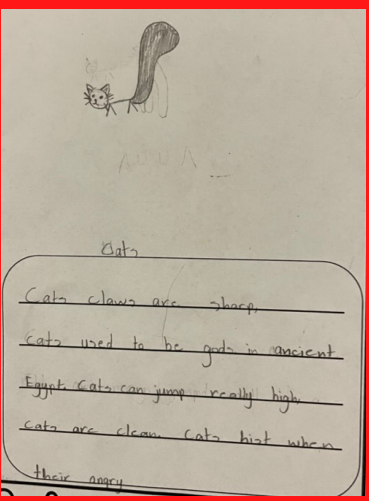 Cats
Cats claws are sharp.
cats used to be gods in ancient
Egypt. Cats can jump really high.
cats are clean. Cats hist when
their angry